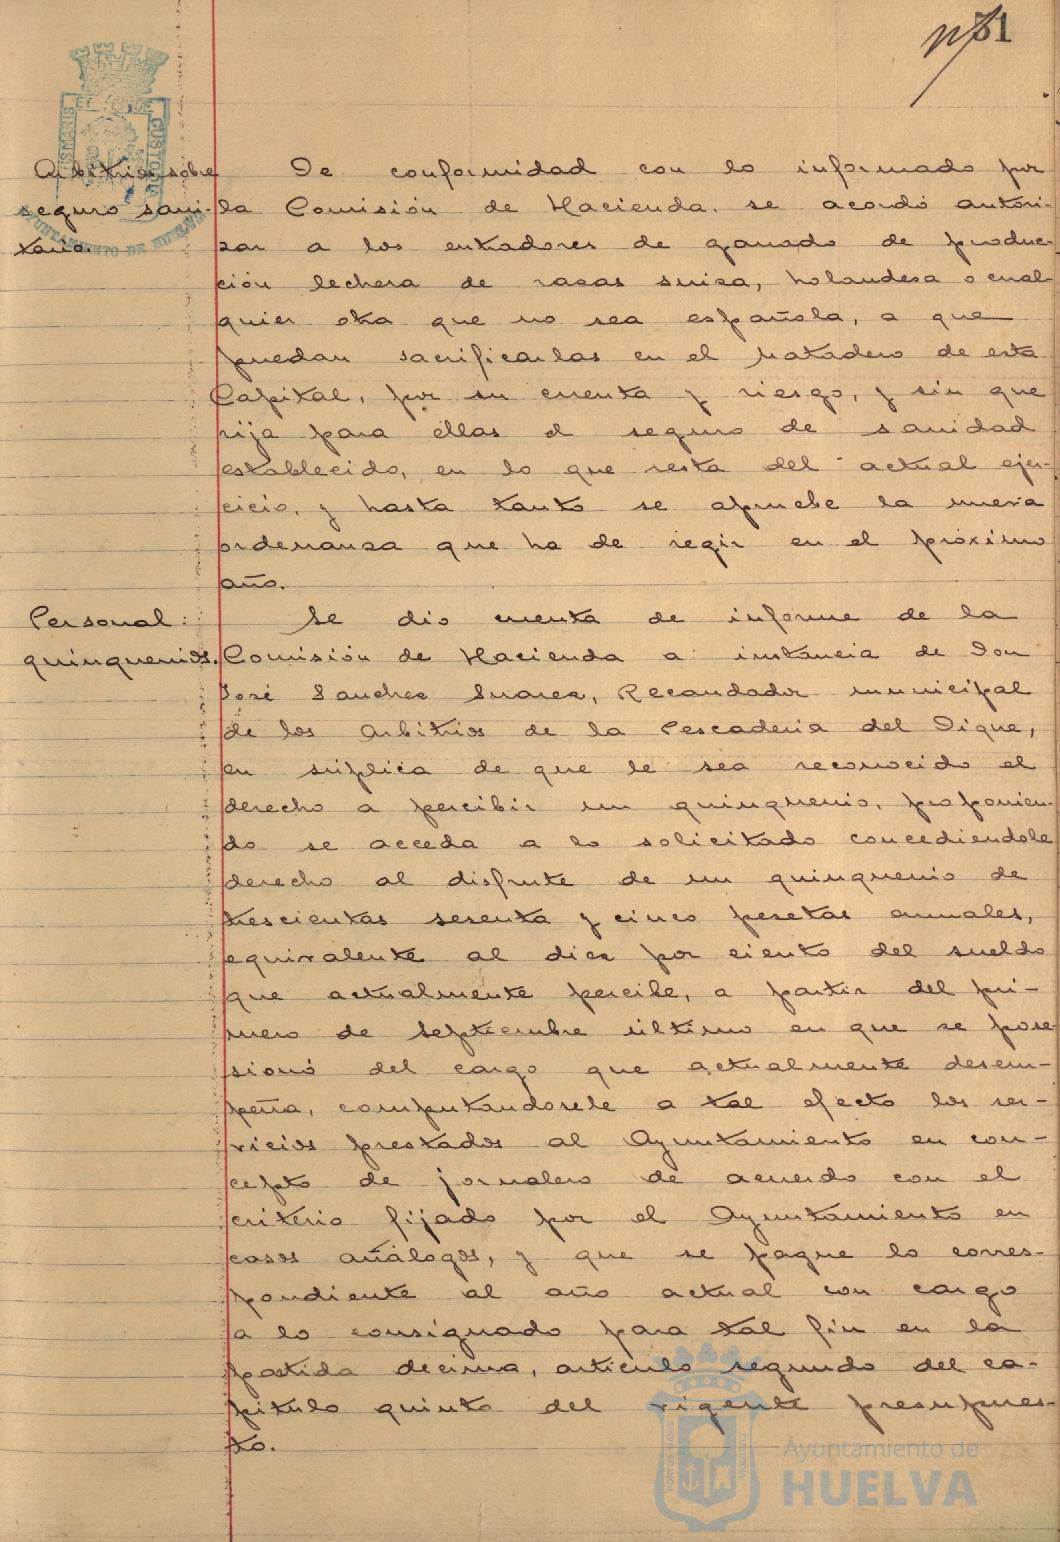 31
Arbitrios sobre
seguro sani-
tario.
De conformidad con lo informado por
la Comisión de Hacienda. se acordó autori-
zar a los entradores de ganado de produc-
ción lechera de razas suiza, holandesa o cual
quier otra que no sea española, a que
puedan sacrificarlas en el matadero de esta
Capital, por su cuenta y riesgo, y sin que
rija para ellas el seguro de sanidad
establecido, en lo que resta del actual ejer-
cicio, y hasta tanto se apruebe la nueva
ordenanza que ha de regir en el próximo
año.
Personal:
quinquenios.
Se dio cuenta de informe de la
Comisión de Hacienda a instancia de Don
José Sanchez Suarez, Recaudador municipal
de los Arbitrios de la Pescaderia del Dique,
en súplica de que le sea reconocido el
derecho a percibir un quinquenio, proponien-
do se acceda a lo solicitado concediendole
derecho al disfrute de un quinquenio de
trescientas sesenta y cinco pesetas anuales,
equivalente al diez por ciento del sueldo
que actualmente percibe, a partir del pri-
mero de Septiembre último en que se pose
sionó del cargo que actualmente desem-
peña, computandosele a tal efecto los ser-
vicios prestados al Ayuntamiento en con-
cepto de jornalero de acuerdo con el
criterio fijado por el Ayuntamiento en
casos análogos, y que se pague lo corres-
pondiente al año actual con cargo
a lo consignado para tal fin en la
partida decima, articulo segundo del ca-
pitulo quinto del vigente presupues-
to.
AYUNTAMIENTO DE HUELVA
Ayuntamiento de
HUELVA